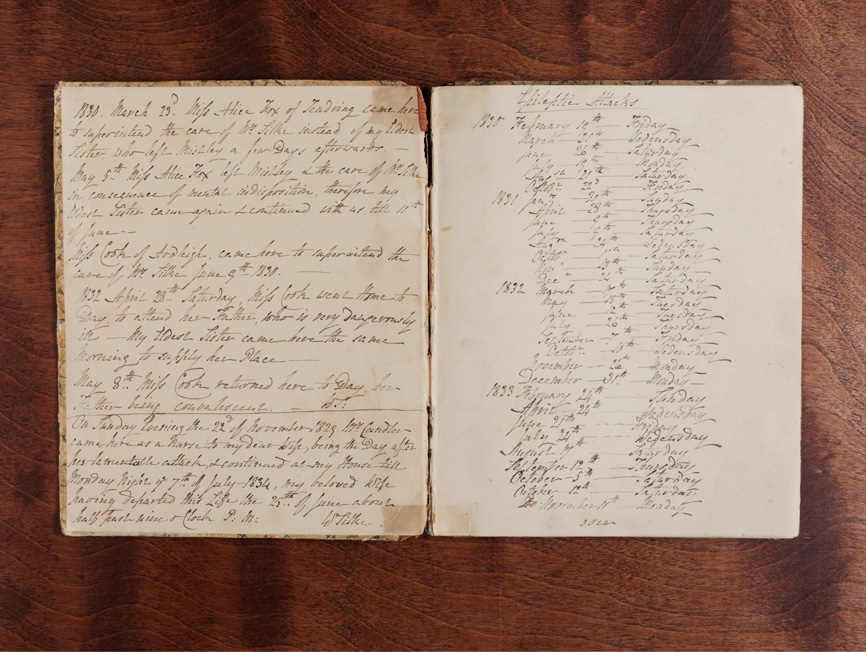 1830. March 23d. Miss Alice Fox of Tendring came here
to superintend the care of Mrs. Silke instead of my Eldest
Sister, who left Mistley a few Days afterwards —
May 5th Miss Alice Fox left Mistley & the care of Mrs. Silke
in consequence of mental indisposition, therefore my
Eldest Sister came again & continued with us till 11th
of June —
Miss Cook of Ardleigh, came here to superintend the
care of Mrs. Silke June 9th 1830. —
1832 April 28th Saturday, Miss Cook went Home to
Day to attend her Father, who is very dangerously
ill — My Eldest Sister came here the same
Morning to supply her Place —
May 8th Miss Cook returned here to Day, her
Father being convalescent. — W. S:
On Sunday Evening the 22d of November 1829 Mrs. Candler
came here as a Nurse to my dear Wife, being the Day after
her lamentable attack, & continued at my House till
Monday Night ye 7th of July 1834, my beloved Wife
having departed this Life the 25th of June about
half past nine o'Clock P: M: Wm Silke
Epileptic Attacks
1830 February 12th Friday
March 31st Wednesday
June 26th Saturday
July Monday
Saturday
Octobr. 22d Friday
1831 Jany. Thursday
April 28th Thursday
June 9th Thursday
July Saturday
Augt. Wednesday
Octr. Saturday
Novr. Sunday
Dec Saturday
1832 March Saturday
May 15th Tuesday
June 12th Tuesday
July 26 Thursday
September Sunday
Octobr. Wednesday
November 26 Monday
December 31st Monday
1833 February Sunday
April 24th Wednesday
June Friday
July 24th Wednesday
August Saturday
September 12th Thursday
October 5th Saturday
October 12th Saturday
November 11th Monday
over